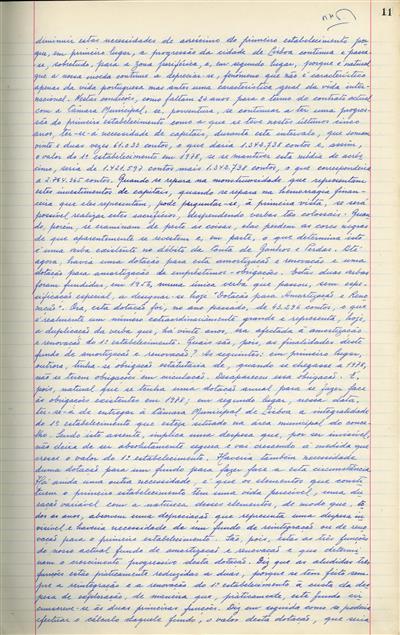 11
diminuir estas necessidades de acréscimo do primeiro estabelecimento por-
que, em primeiro lugar, a progressão da cidade de Lisboa continua e passa-
se, sobretudo, para a zona periférica, e, em segundo lugar, porque é natural
que a nossa moeda continue a depreciar-se, fenómeno que não é característico
apenas da vida portuguesa mas antes uma característica geral da vida inter-
nacional. Nestas condições, como faltam 22 anos para o termo do contrato actual
com a Câmara Municipal, e, porventura, se continuar a ter uma progres-
são do primeiro estabelecimento como a que se teve nestes últimos cinco
anos, ter-se-á necessidade de capitais, durante este intervalo, que somam
vinte e duas vezes 61.033 contos, o que daria 1.342.738 contos e, assim,
o valor do 1º estabelecimento em 1978, se se mantiver esta média de acrés-
cimo, seria de 1.421.597 contos mais 1.342.738 contos, o que corresponderia
a 2.764.335 contos. Quando se repara na monstruosidade que representam
estes investimentos de capitais, quando se repara na hemorragia finan-
ceira que eles representam, pode perguntar-se, à primeira vista, se será
possível realizar estes sacrifícios, despendendo verbas tão colossais. Quan-
do, porém, se examinam de perto as coisas, elas perdem as cores negras
de que aparentemente se revestem e, em parte, o que determina isto
é uma verba existente no débito da Conta de Ganhos e Perdas. Até
agora, havia uma dotação para esta amortização e renovação e uma
dotação para amortização de empréstimos-obrigações. Estas duas verbas
foram fundidas, em 1956, numa única verba que passou, sem espe-
cificação especial, a designar-se hoje "Dotação para Amortização e Reno-
vação". Ora, esta dotação foi, no ano passado, de 43.296 contos, o que
é realmente um número extraordinariamente grande e representa, hoje,
a duplicação da verba que, há vinte anos, era afectada à amortização
e renovação do 1º estabelecimento. Quais são, pois, as finalidades deste
fundo de amortização e renovação? As seguintes: em primeiro lugar,
outrora, tinha-se obrigação estatutária de, quando se chegasse a 1978,
não se terem obrigações em circulação. Desapareceu essa obrigação? É,
pois, natural que se tenha uma dotação anual para se fazer face
às obrigações existentes em 1978; em segundo lugar, nessa data,
ter-se-á de entregar à Câmara Municipal de Lisboa a integralidade
do 1º estabelecimento que esteja situado na área municipal do conce-
lho. Sendo isto assente, implica uma despesa que, por ser invisível,
não deixa de ser absolutamente segura e vai crescendo à medida que
cresce o valor do 1º estabelecimento. Haveria também necessidade
duma dotação para um fundo para fazer face a esta circunstância.
Há ainda uma outra necessidade, é que os elementos que consti-
tuem o primeiro estabelecimento têm uma vida perecível, uma du-
ração variável com a natureza desses elementos, de modo que, to-
dos os anos, absorvem uma depreciação que representa uma despesa in-
visível e haveria necessidade de um fundo de reintegração ou de reno-
vação para o primeiro estabelecimento. São, pois, estas as três funções
do nosso actual fundo de amortização e renovação e que determi-
nam o crescimento progressivo desta dotação. Diz que as aludidas três
funções estão praticamente reduzidas a duas, porque se tem feito sem-
pre a reintegração e a renovação do 1º estabelecimento à custa da des-
pesa de exploração, de maneira que, praticamente, este fundo cir-
cunscreve-se às duas primeiras funções. Diz em segundo como se poderia
efectuar o cálculo daquele fundo, o valor desta dotação, que seria